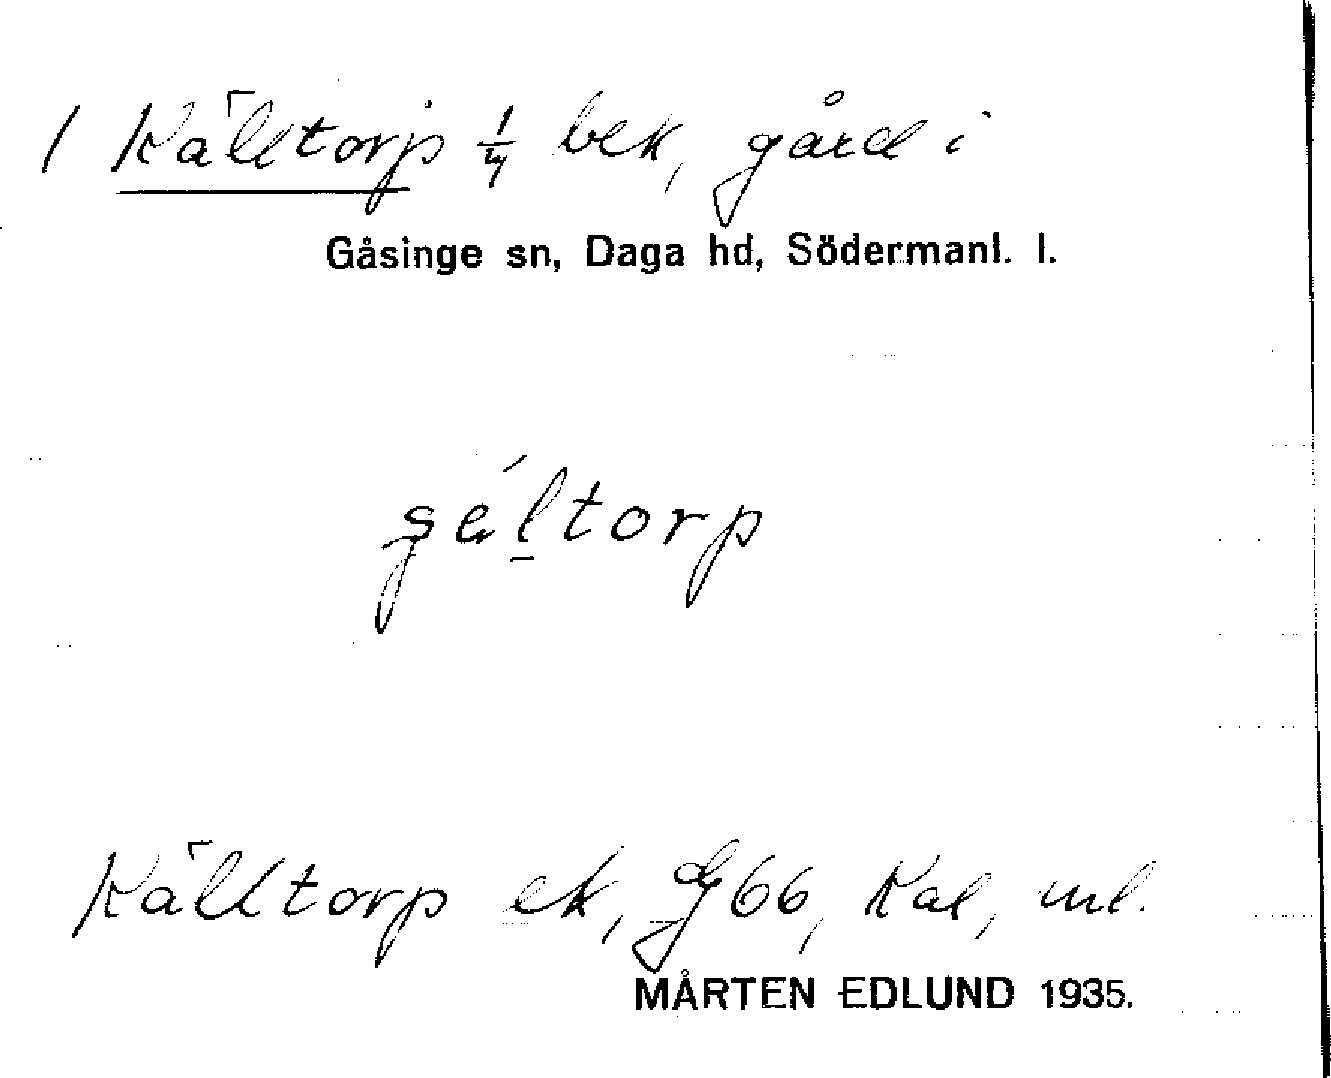 1 Källtorp 1/4 bek, gård i
Gåsinge sn, Daga hd, Södermanl. l.
Källtorp ek, G66, Kal, ml.
MÅRTEN EDLUND 1935.